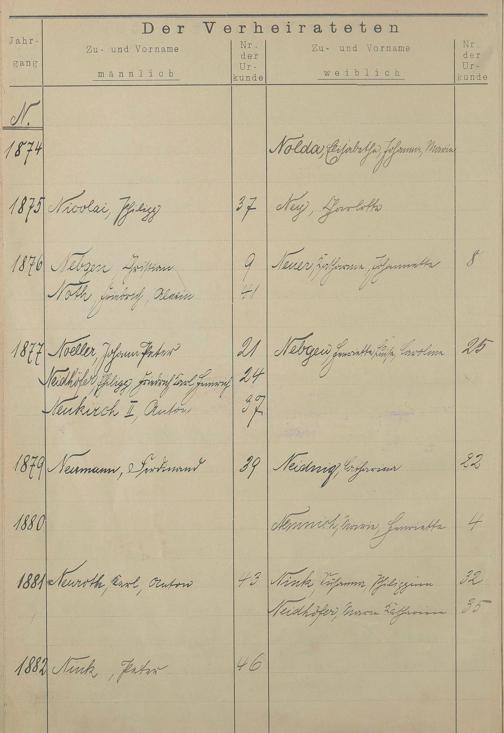 Der Verheirateten
Jahr-gang Zu- und Vorname männlich Nr. der Ur-kunde Zu- und Vorname weiblich Nr. der Ur-kunde
N.
1874 Nolda, Elisabethe, Johanna, Marie
1875 Nicolai, Philipp 37 Ney, Charlotte
1876 Nebgen, Christian 9 Neuer, Katharine, Johannette 8
Noth, Friedrich, 41
1877 Noeller, Johann Peter 21 Nebgen, Henriette, Luise, Caroline 25
Neidhöfer, Philipp Friedrich Carl Heinrich 24
Neukirch II, Anton 37
1879 Neumann, Ferdinand 39 Neiding, Catharina 22
1880 Nennich, Maria, Henriette 4
1881 Neuroth, Carl, Anton 43 Nink, Susanna, Philippine 32
Neidhöfer, Maria Katharina 35
1882 Nink, Peter 46